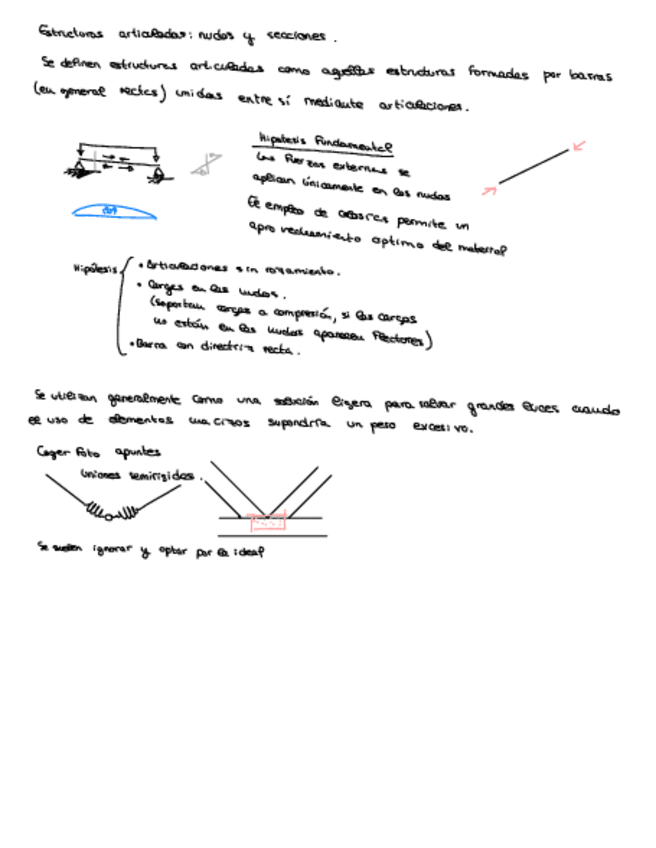 Estructuras articuladas: nudos y secciones.
Se definen estructuras articuladas como aquellas estructuras formadas por barras
(en general rectas) unidas entre sí mediante articulaciones.
Hipótesis Fundamental
Las fuerzas externas se
aplican únicamente en los nudos
El empleo de celosías permite un
aprovechamiento optimo del material
Hipótesis
• Articulaciones sin rozamiento.
• Cargas en los nudos.
(soportan cargas a compresión, si las cargas
no están en los nudos aparecen flectores)
• Barra con directriz recta.
Se utilizan generalmente como una solución ligera para salvar grandes luces cuando
el uso de elementos macizos supondría un peso excesivo.
Coger foto apuntes
Uniones semirigidas.
Se suelen ignorar y optar por la ideal